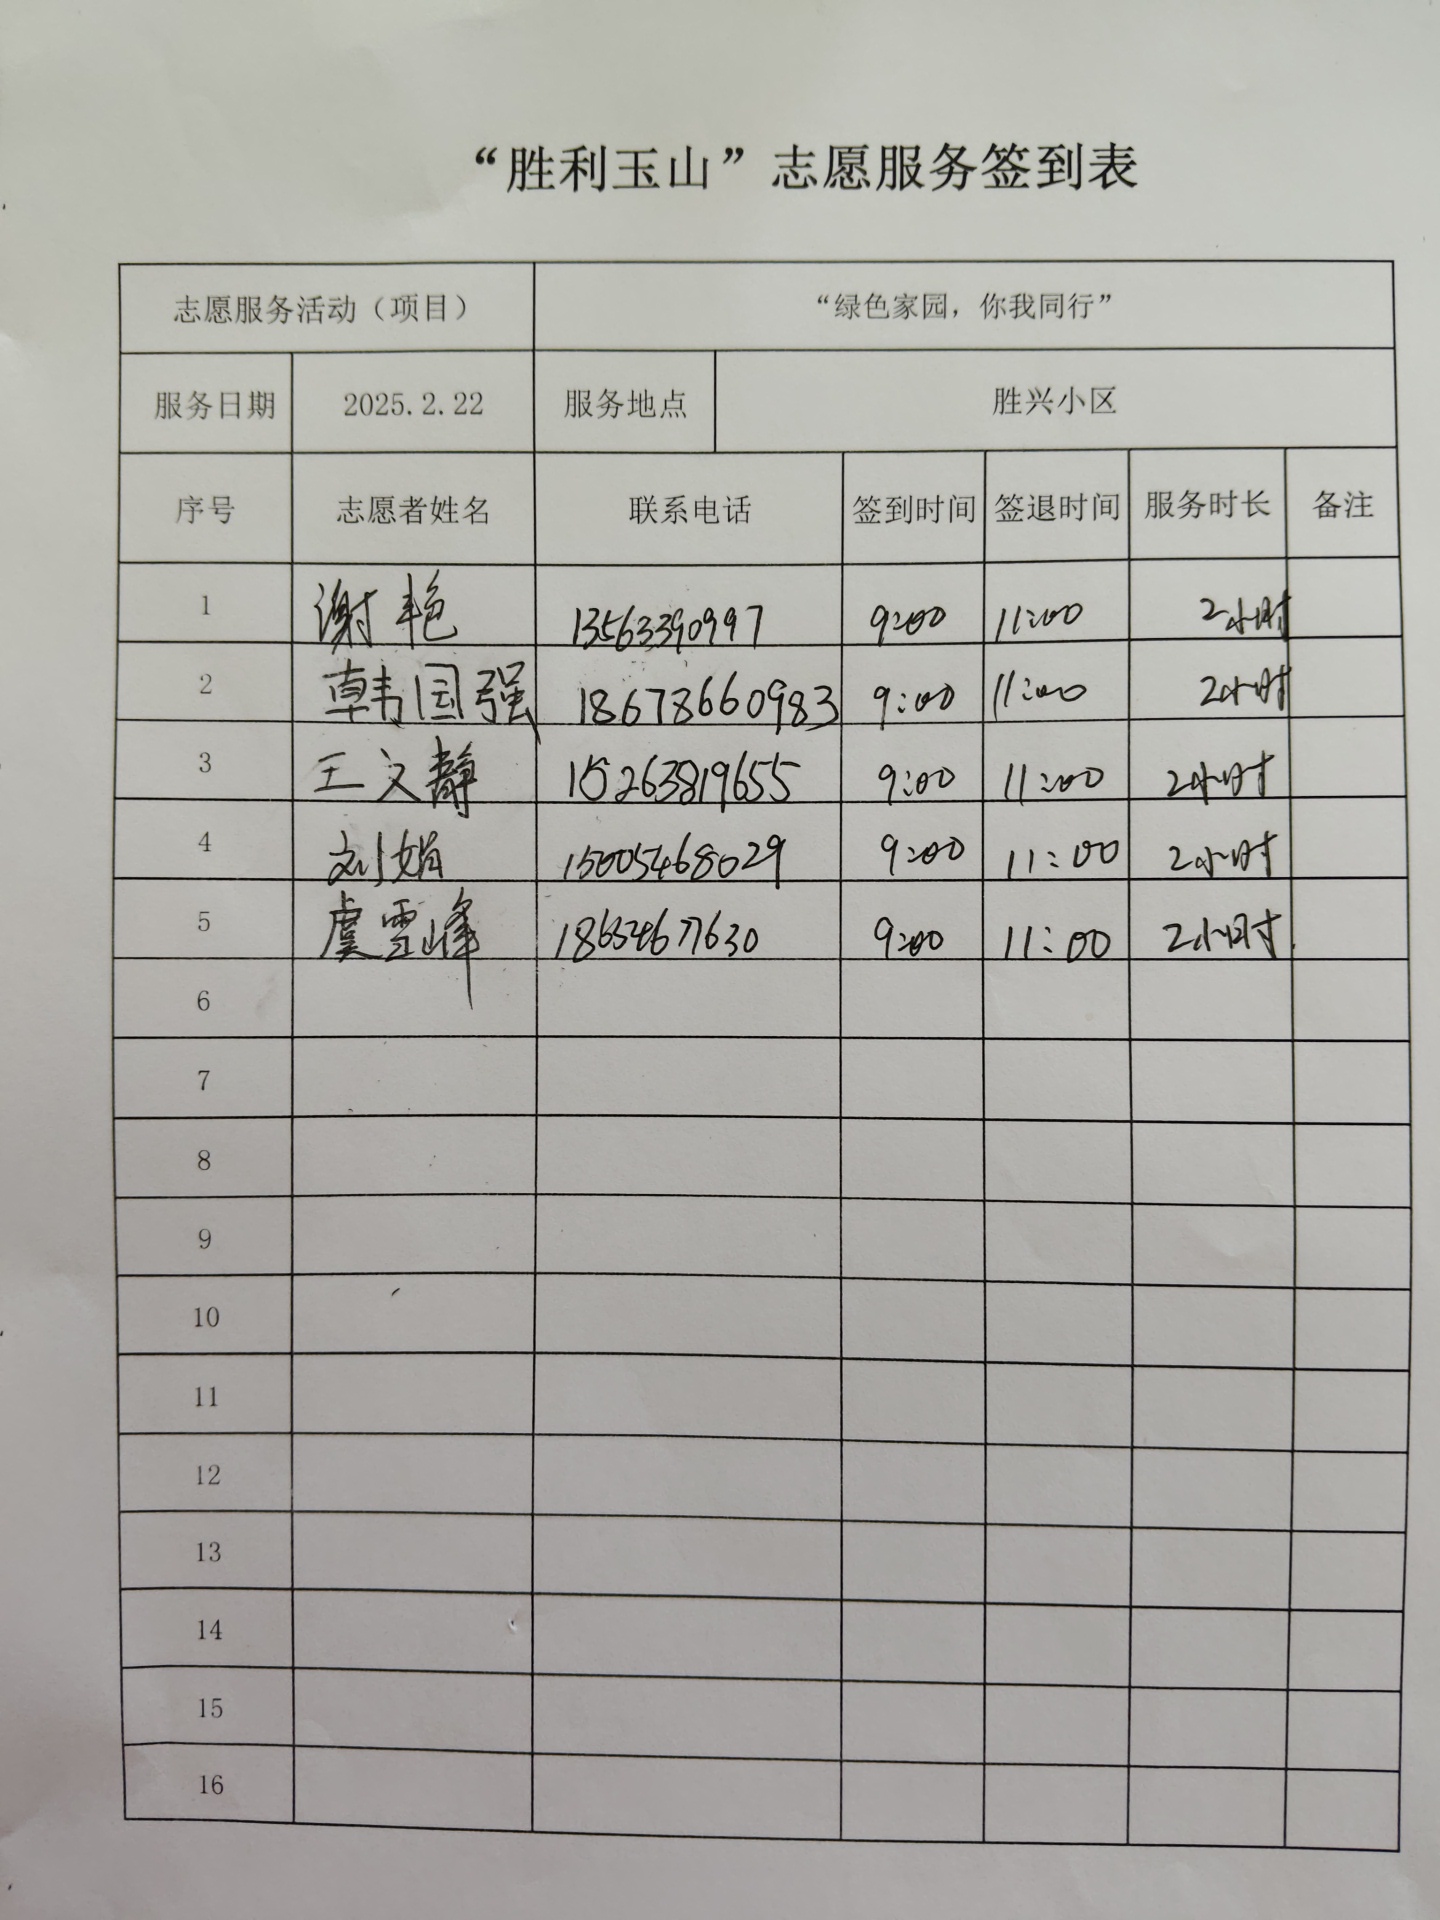 “胜利玉山”志愿服务签到表
志愿服务活动（项目） “绿色家园，你我同行”
服务日期 2025.2.22 服务地点 胜兴小区
序号 志愿者姓名 联系电话 签到时间 签退时间 服务时长 备注
1 谢艳 13563390997 9:00 11:00 2小时
2 韩国强 18678660983 9:00 11:00 2小时
3 王文静 15263819655 9:00 11:00 2小时
4 刘娟 15005468029 9:00 11:00 2小时
5 虞雪峰 18654677630 9:00 11:00 2小时
6
7
8
9
10
11
12
13
14
15
16